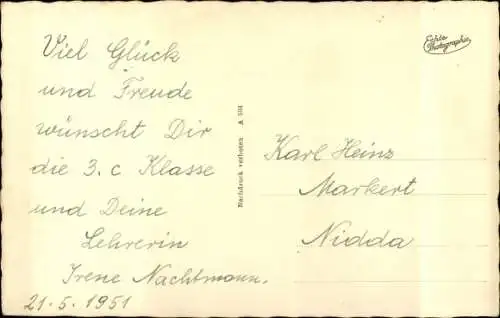 Viel Glück
und Freude
wünscht Dir
die 3. c Klasse
und Deine
Lehrerin
Irene Nachtmann.
21.5.1951
Nachdruck verboten A 504
Echte
Photographie
Karl Heinz
Markert
Nidda